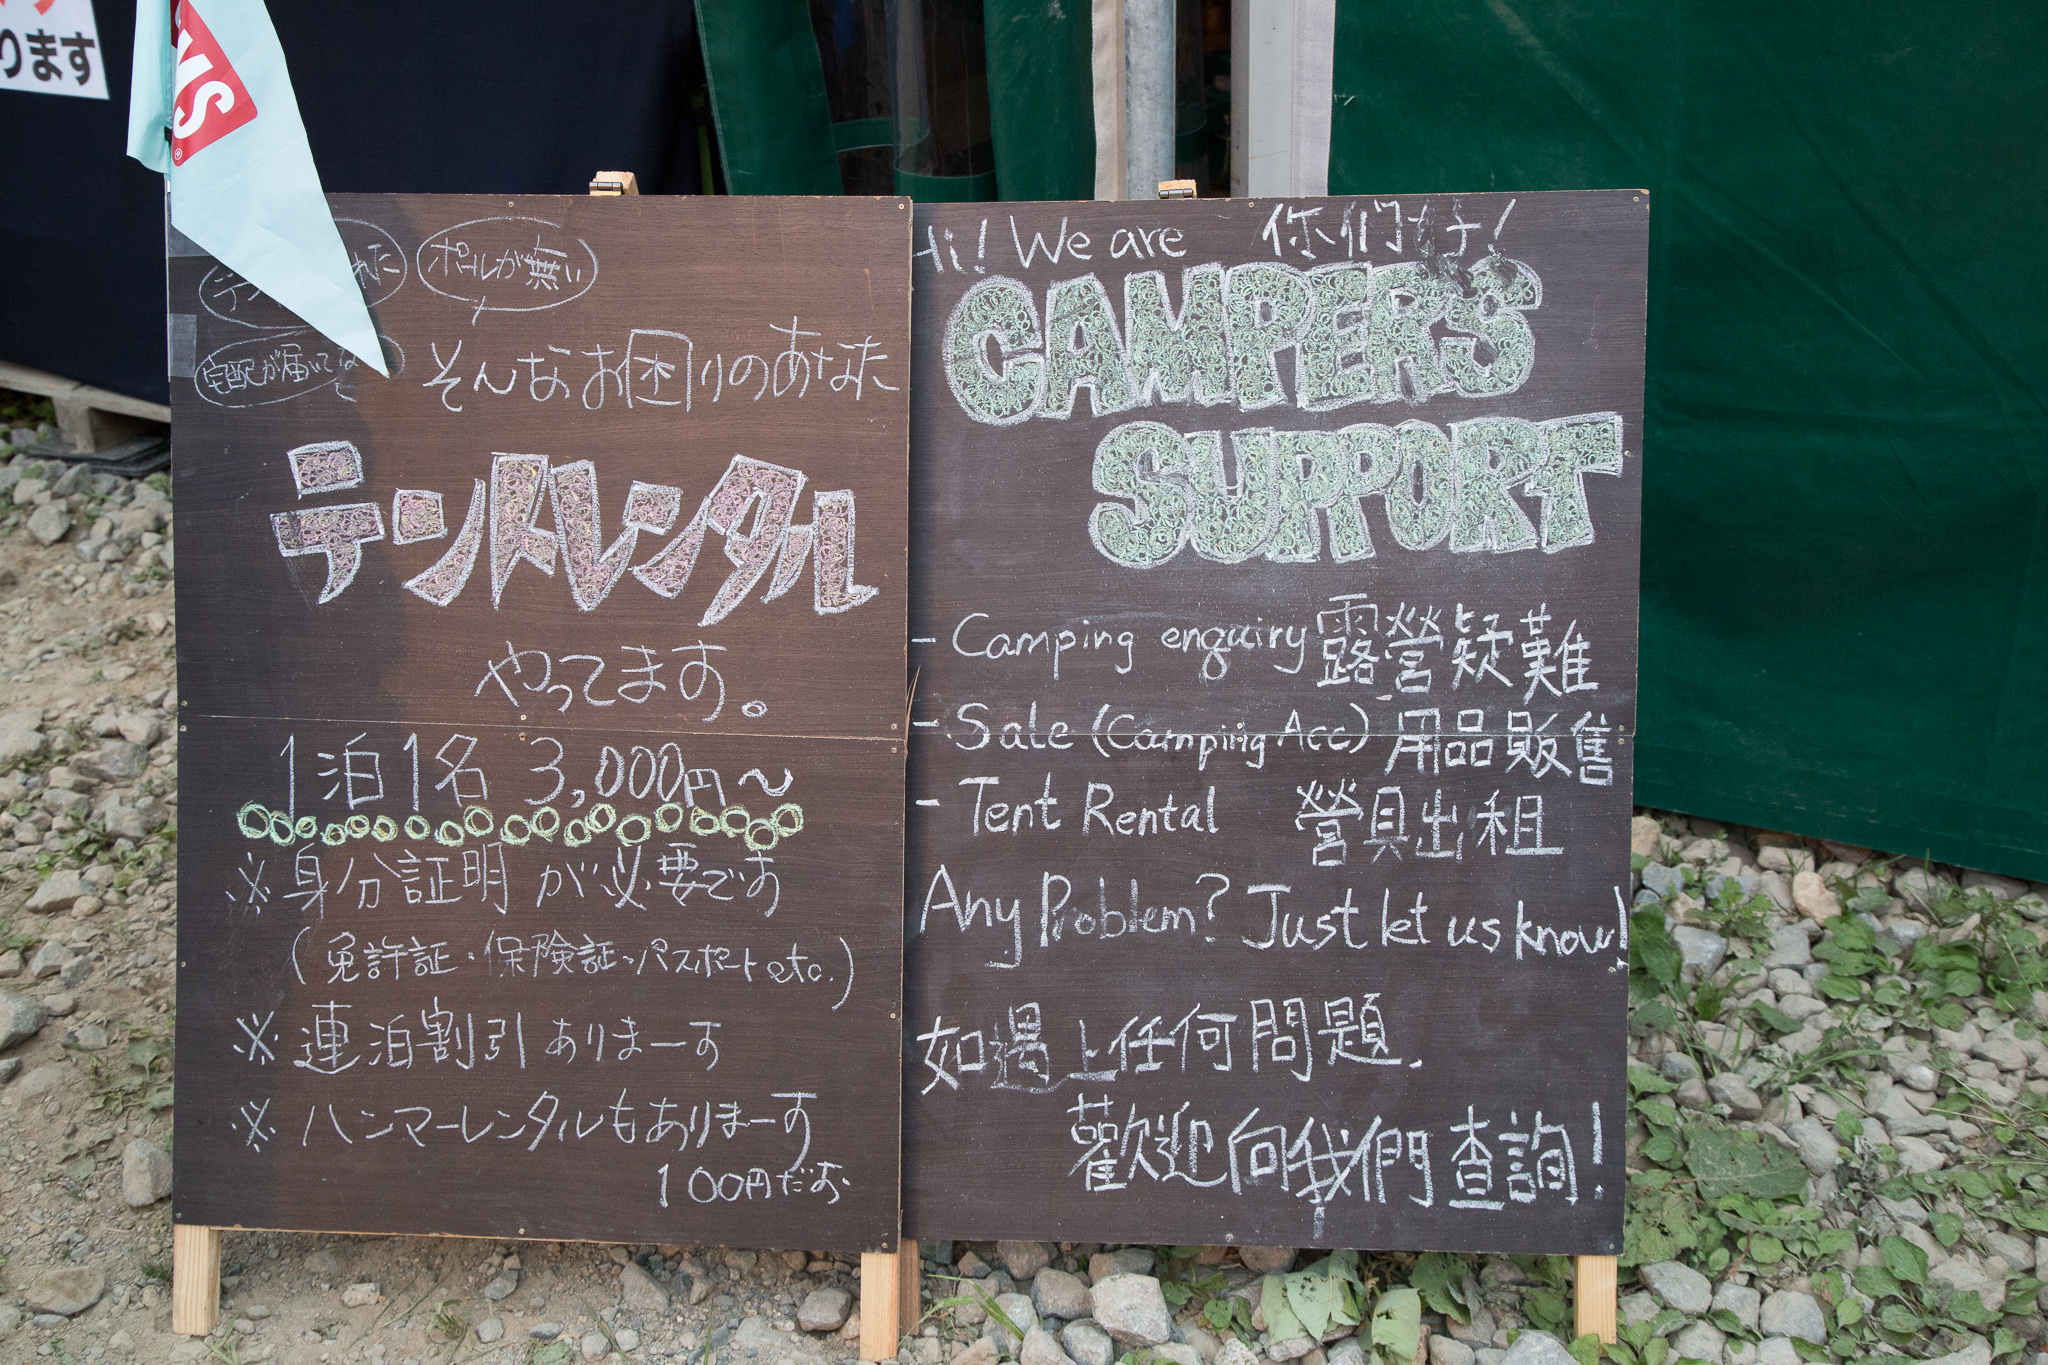 ります
ポールが無い
宅配が届いてな
そんなお困りのあなた
テントレンタル
やってます。
1泊1名 3,000円〜
※身分証明が必要です
(免許証・保険証・パスポートetc.)
※連泊割引ありまーす
※ハンマーレンタルもありまーす
100円だお
Hi! We are 你们好!
CAMPERS
SUPPORT
- Camping enquiry 露營疑難
- Sale (Camping Acc) 用品販售
- Tent Rental 營具出租
Any Problem? Just let us know!
如遇上任何問題,
歡迎向我們查詢!